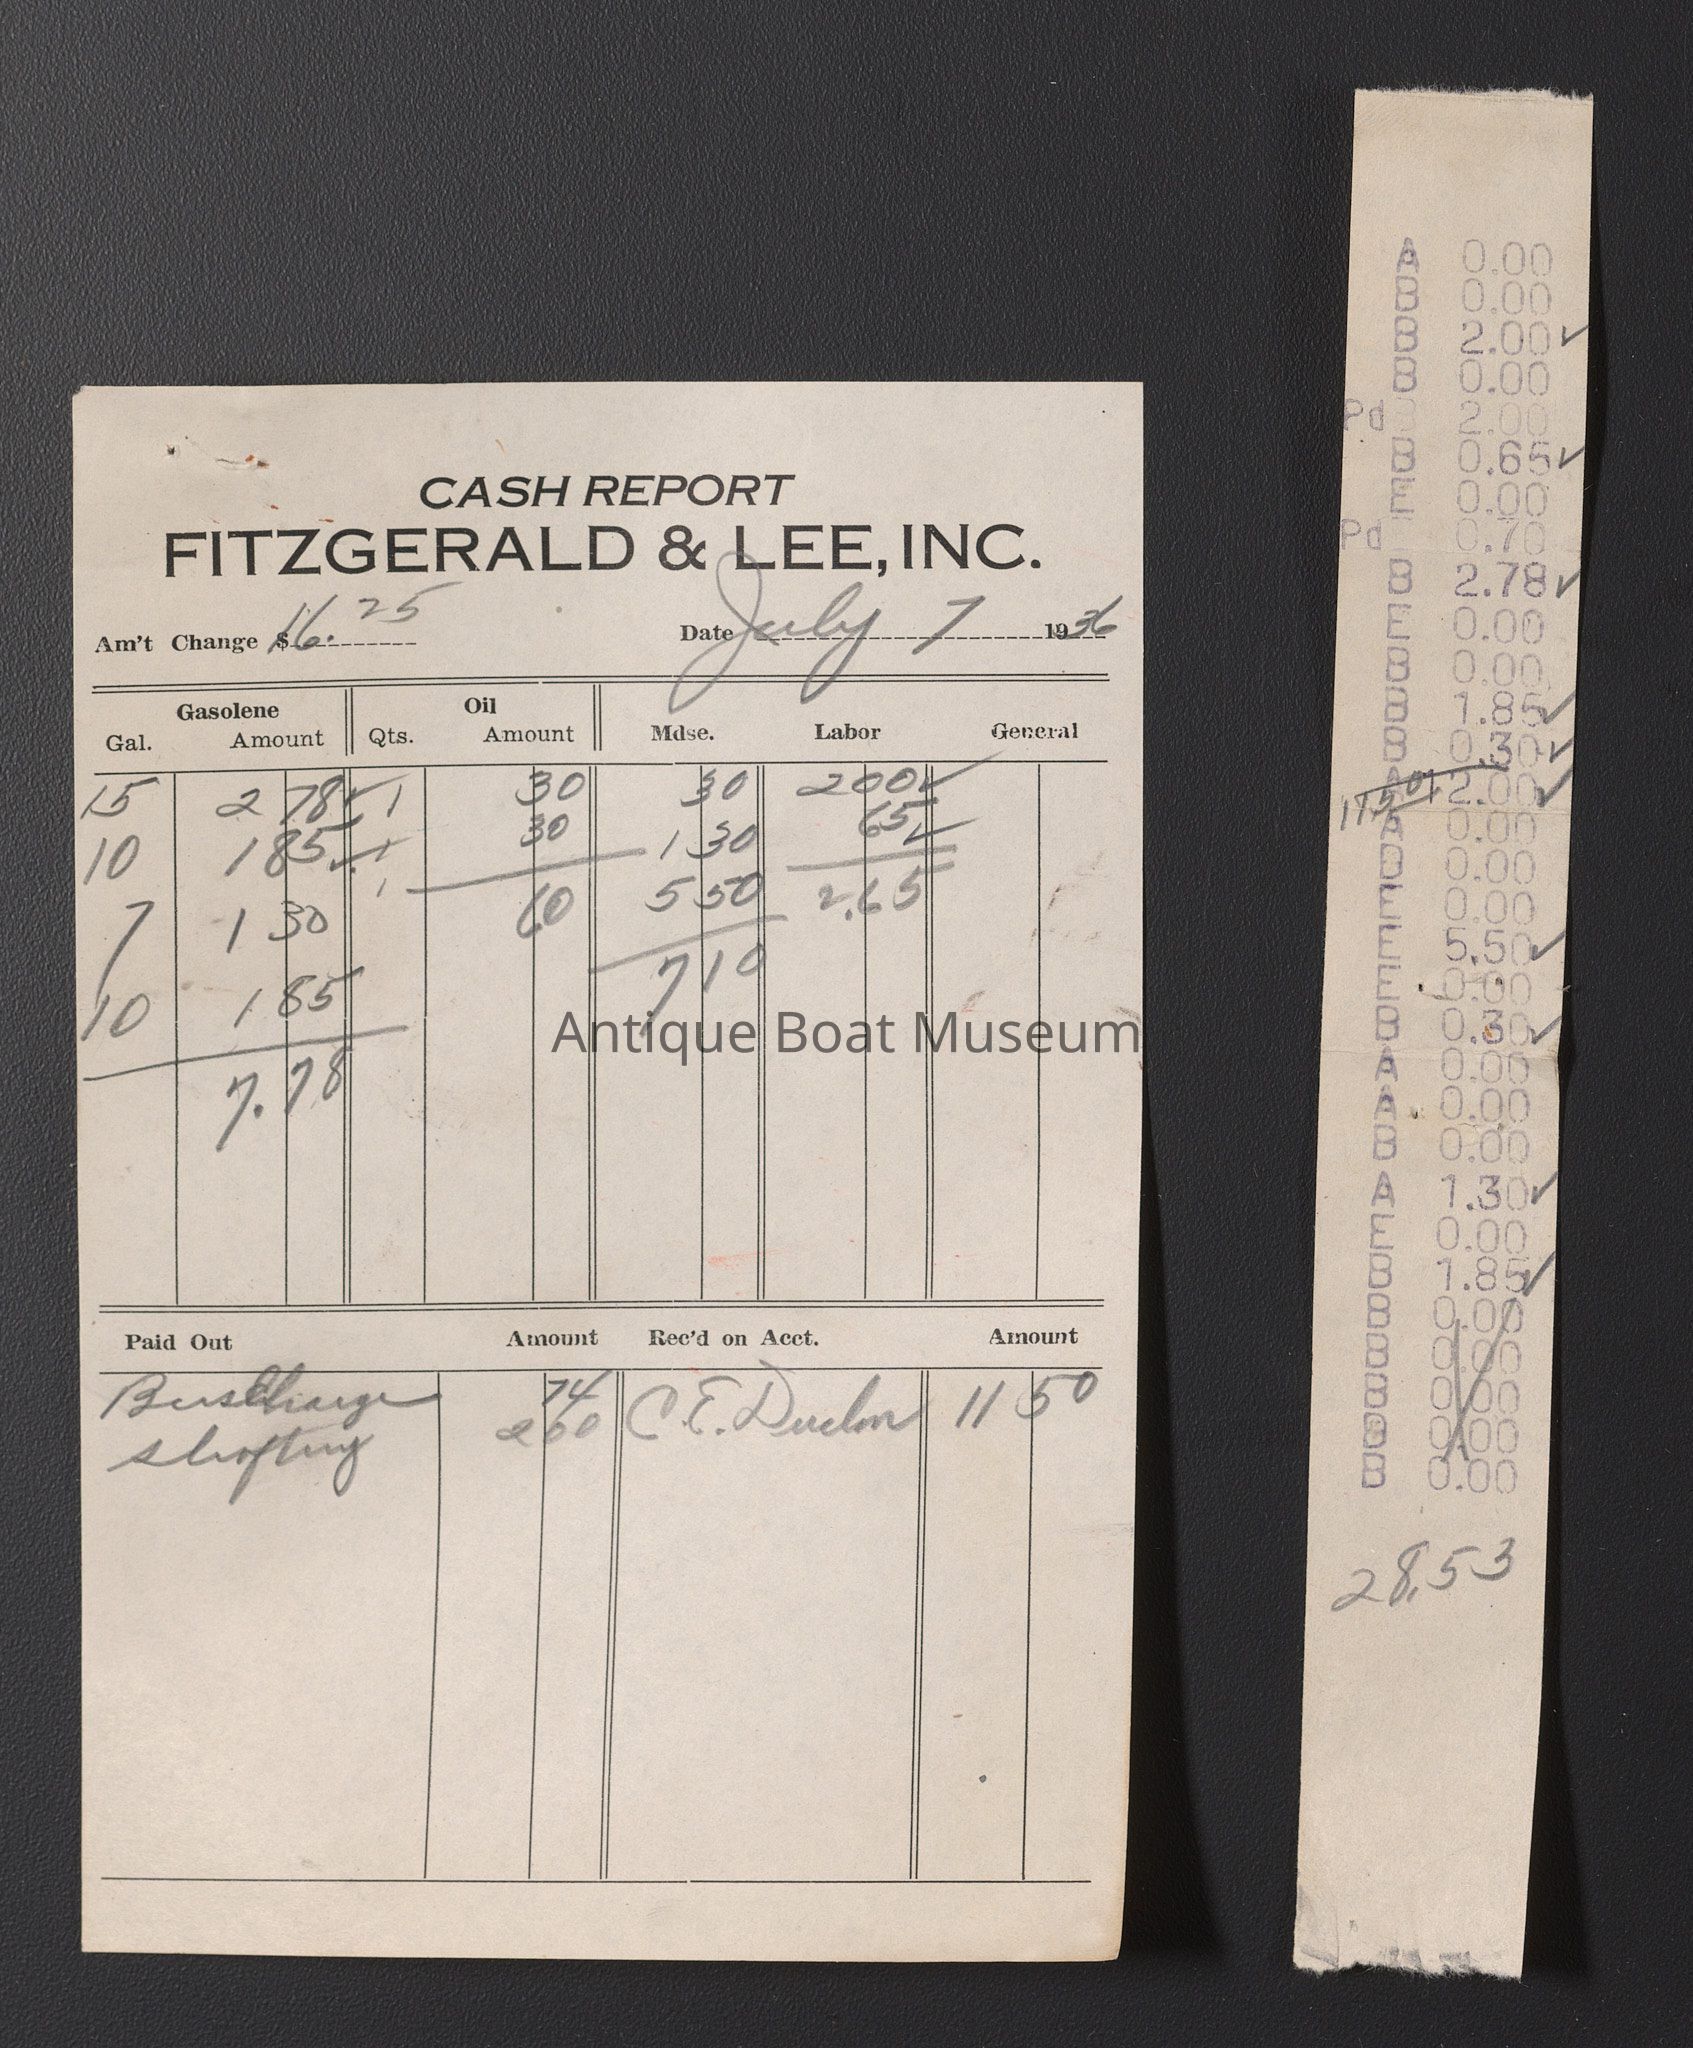 CASH REPORT
FITZGERALD & LEE, INC.
Am't Change $ 16.25 Date July 7 1936
Gasolene Oil
Gal. Amount Qts. Amount Mdse. Labor General
15 2 78 ✓ 1 30 30 2 00 ✓
10 1 85 ✓ 1 30 1 30 65 ✓
7 1 30 60 5 50 2.65
10 1 85 7 10
7.78
Antique Boat Museum
Paid Out Amount Rec'd on Acct. Amount
Bus Charge 74 C. E. 11 50
shafting 2 00
A 0.00
B 0.00
B 2.00 ✓
B 0.00
Pd 2.00
B 0.65 ✓
E 0.00
Pd 0.70
B 2.78 ✓
E 0.00
B 0.00
B 1.85 ✓
B 0.30 ✓
A 12.00 ✓
11.50
A 0.00
B 0.00
E 0.00
E 5.50 ✓
E 0.00
B 0.30 ✓
A 0.00
A 0.00
B 0.00
A 1.30 ✓
E 0.00
B 1.85 ✓
B 0.00
B 0.00
B 0.00
B 0.00
B 0.00
28.53